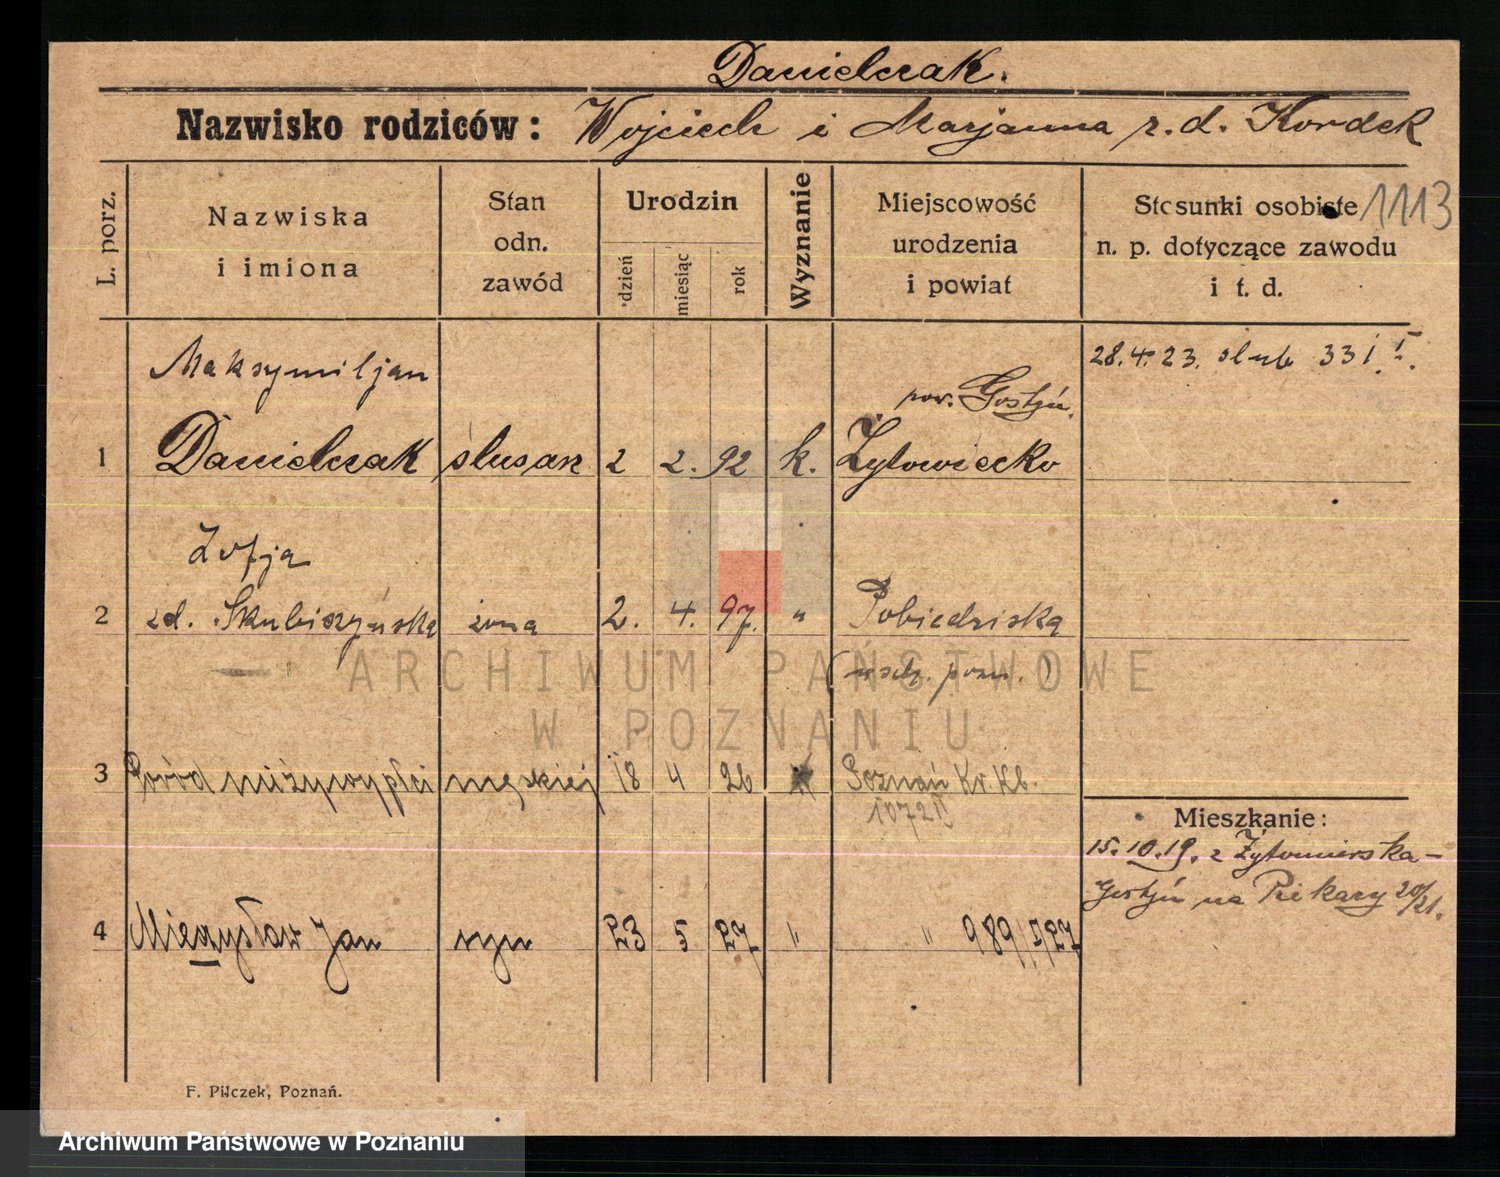 Danielczak.
Nazwisko rodziców: Wojciech i Marjanna z. d. Kordek
1113
L. porz.
Nazwiska
i imiona
Stan
odn.
zawód
Urodzin
dzień
miesiąc
rok
Wyznanie
Miejscowość
urodzenia
i powiat
Stosunki osobiste
n. p. dotyczące zawodu
i t. d.
Maksymiljan
28.4.23. slub 331
pow. Gostyń.
1 Danielczak slusarz 2 2. 92 k. Żytowiecko
Zofja
2 zd. Skubiszyńska żona 2. 4. 97. " Pobiedziska
ARCHIWUM PAŃSTWOWE
W POZNANIU
3 Poród nieżywy płci męskiej 18 4 26 Poznań Kr. Kb.
1072
Mieszkanie:
15.10.19. z
Gostyń na Piekary 20/21.
4 Mieczysław Jan syn 23 5 27 " " 989/27
F. Pilczek, Poznań.
Archiwum Państwowe w Poznaniu